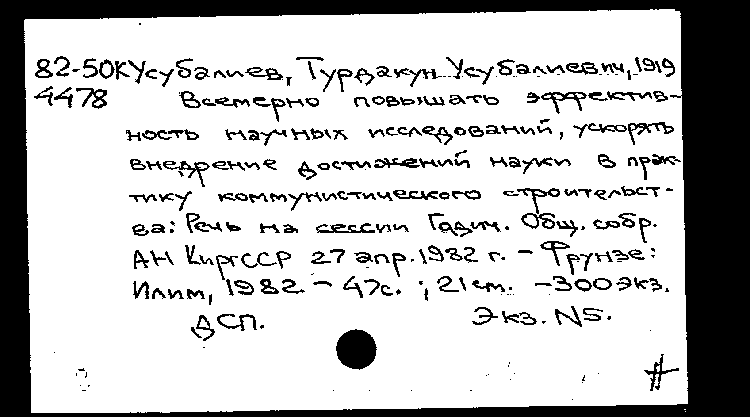 82-50К Усубалиев, Турдакун Усубалиевич, 1919
4478 Всемерно повышать эффектив-
ность научных исследований, ускорять
внедрение достижений науки в прак-
тику коммунистического строительст-
ва: Речь на сессии Годич. Общ. собр.
АН КиргССР 27 апр. 1982 г. - Фрунзе:
Илим, 1982. - 47с. ; 21 см. - 300 экз.
ДСП. Экз. N5.